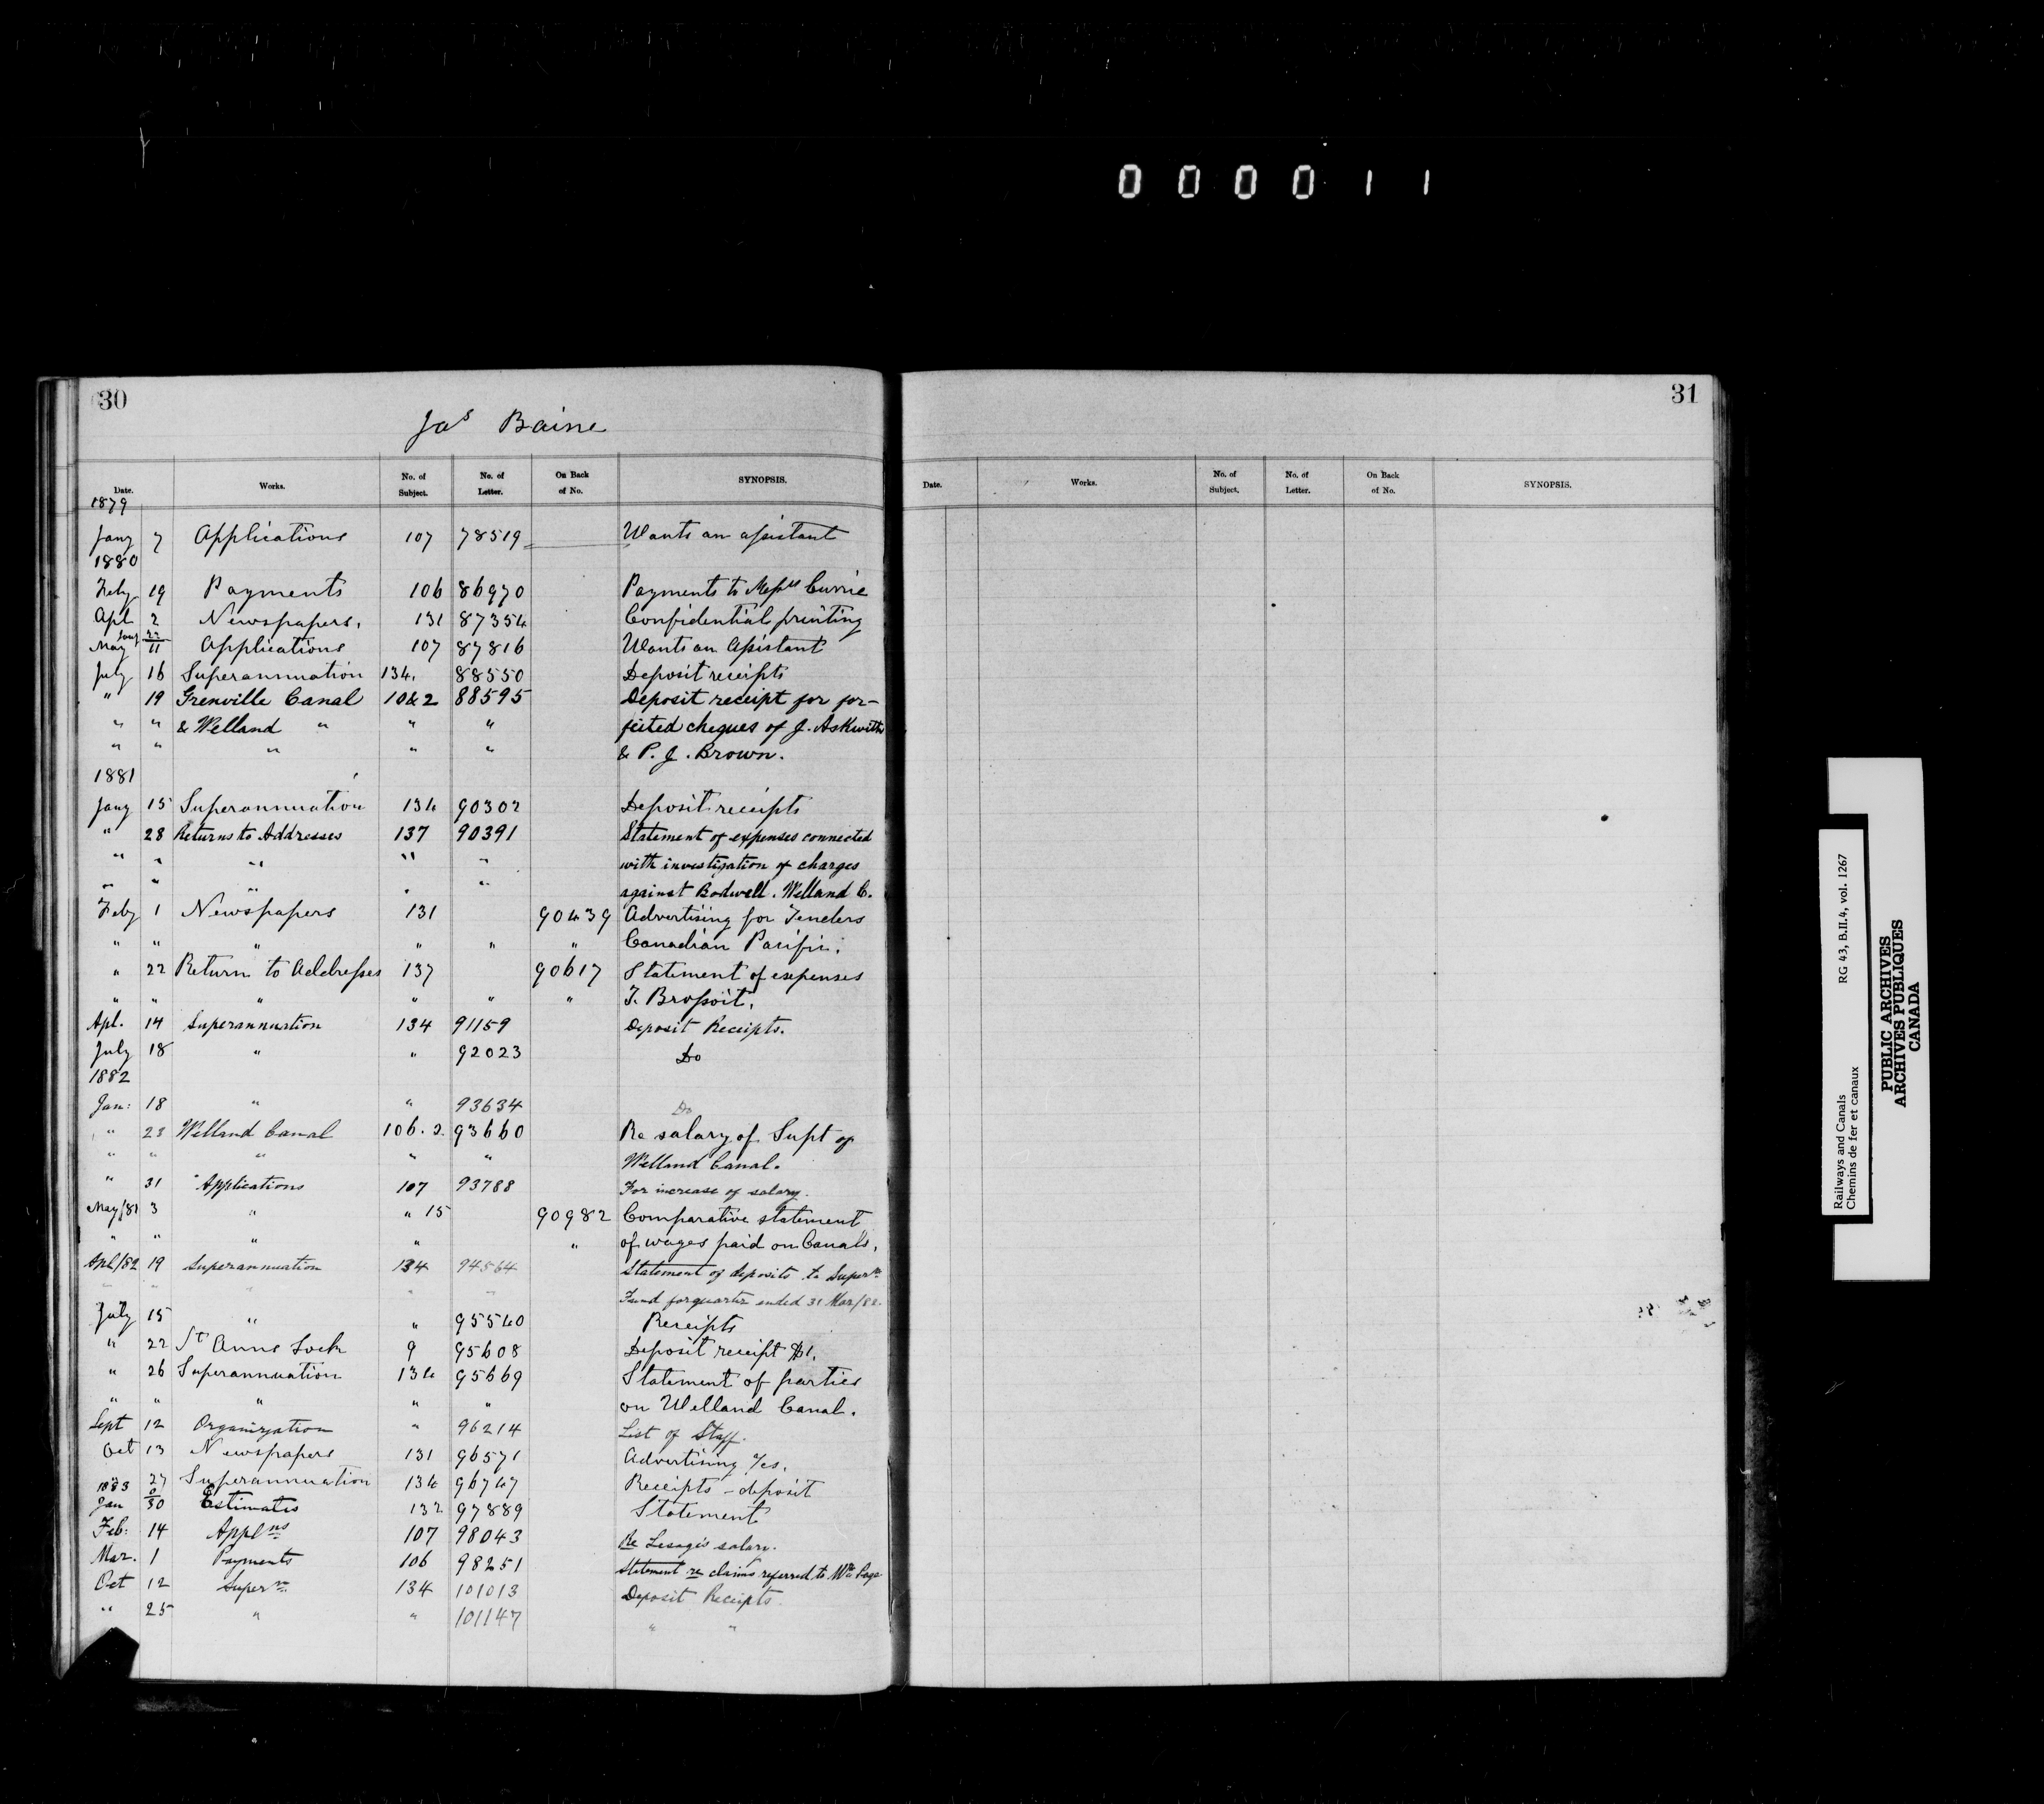 0 0 0 0 1 1
30
Jas Baine
Date. Works. No. of Subject. No. of Letter. On Back of No. SYNOPSIS.
1879
Jany 7 Applications 107 78519 Wants an assistant
1880
Feby 19 Payments 106 86970 Payments to Messrs Currie
Apl 2 Newspapers. 131 87354 Confidential printing
May 11 Applications 107 87816 Wants an Assistant
July 16 Superannuation 134. 88550 Deposit receipts
" 19 Grenville Canal 10&2 88595 Deposit receipt for for-
" " & Welland " " " feited cheques of J. Askwith
" " " " " & P. J. Brown.
1881
Jany 15 Superannuation 134 90302 Deposit receipts
" 28 Returns to Addresses 137 90391 Statement of expenses connected
" " " " " with investigation of charges
" " " " " against Bodwell. Welland C.
Feby 1 Newspapers 131 90439 Advertising for Tenders
" " " " " " Canadian Pacific.
" 22 Return to Addresses 137 90617 Statement of expenses
" " " " " " T. Brossoit.
Apl. 14 Superannuation 134 91159 Deposit Receipts.
July 18 " " 92023 Do
1882
Jan: 18 " " 93634 Do
" 23 Welland Canal 106.2. 93660 Re salary of Supt of
" " " " " Welland Canal.
" 31 Applications 107 93788 For increase of salary.
May/81 3 " " 15 90982 Comparative statement
" " " " " of wages paid on Canals.
Apl/82 19 Superannuation 134 94564 Statement of deposits to Supern
" " " " " Fund for quarter ended 31 Mar/82.
July 15 " " 95540 Receipts
" 22 St Anns Lock 9 95608 Deposit receipt $1.
" 26 Superannuation 134 95669 Statement of parties
" " " " " on Welland Canal.
Sept 12 Organization " 96214 List of Staff.
Oct 13 Newspapers 131 96571 Advertising a/cs.
" 27 Superannuation 134 96747 Receipts - deposit
1883
Jan 30 Estimates 132 97889 Statement
Feb: 14 Applns 107 98043 Re Lesage's salary.
Mar. 1 Payments 106 98251 Statement re claims referred to Mr Page
Oct 12 Supern 134 101013 Deposit Receipts
" 25 " " 101147 " "
31
Date. Works. No. of Subject. No. of Letter. On Back of No. SYNOPSIS.
Railways and Canals RG 43, B.II.4, vol. 1267
Chemins de fer et canaux
PUBLIC ARCHIVES
ARCHIVES PUBLIQUES
CANADA